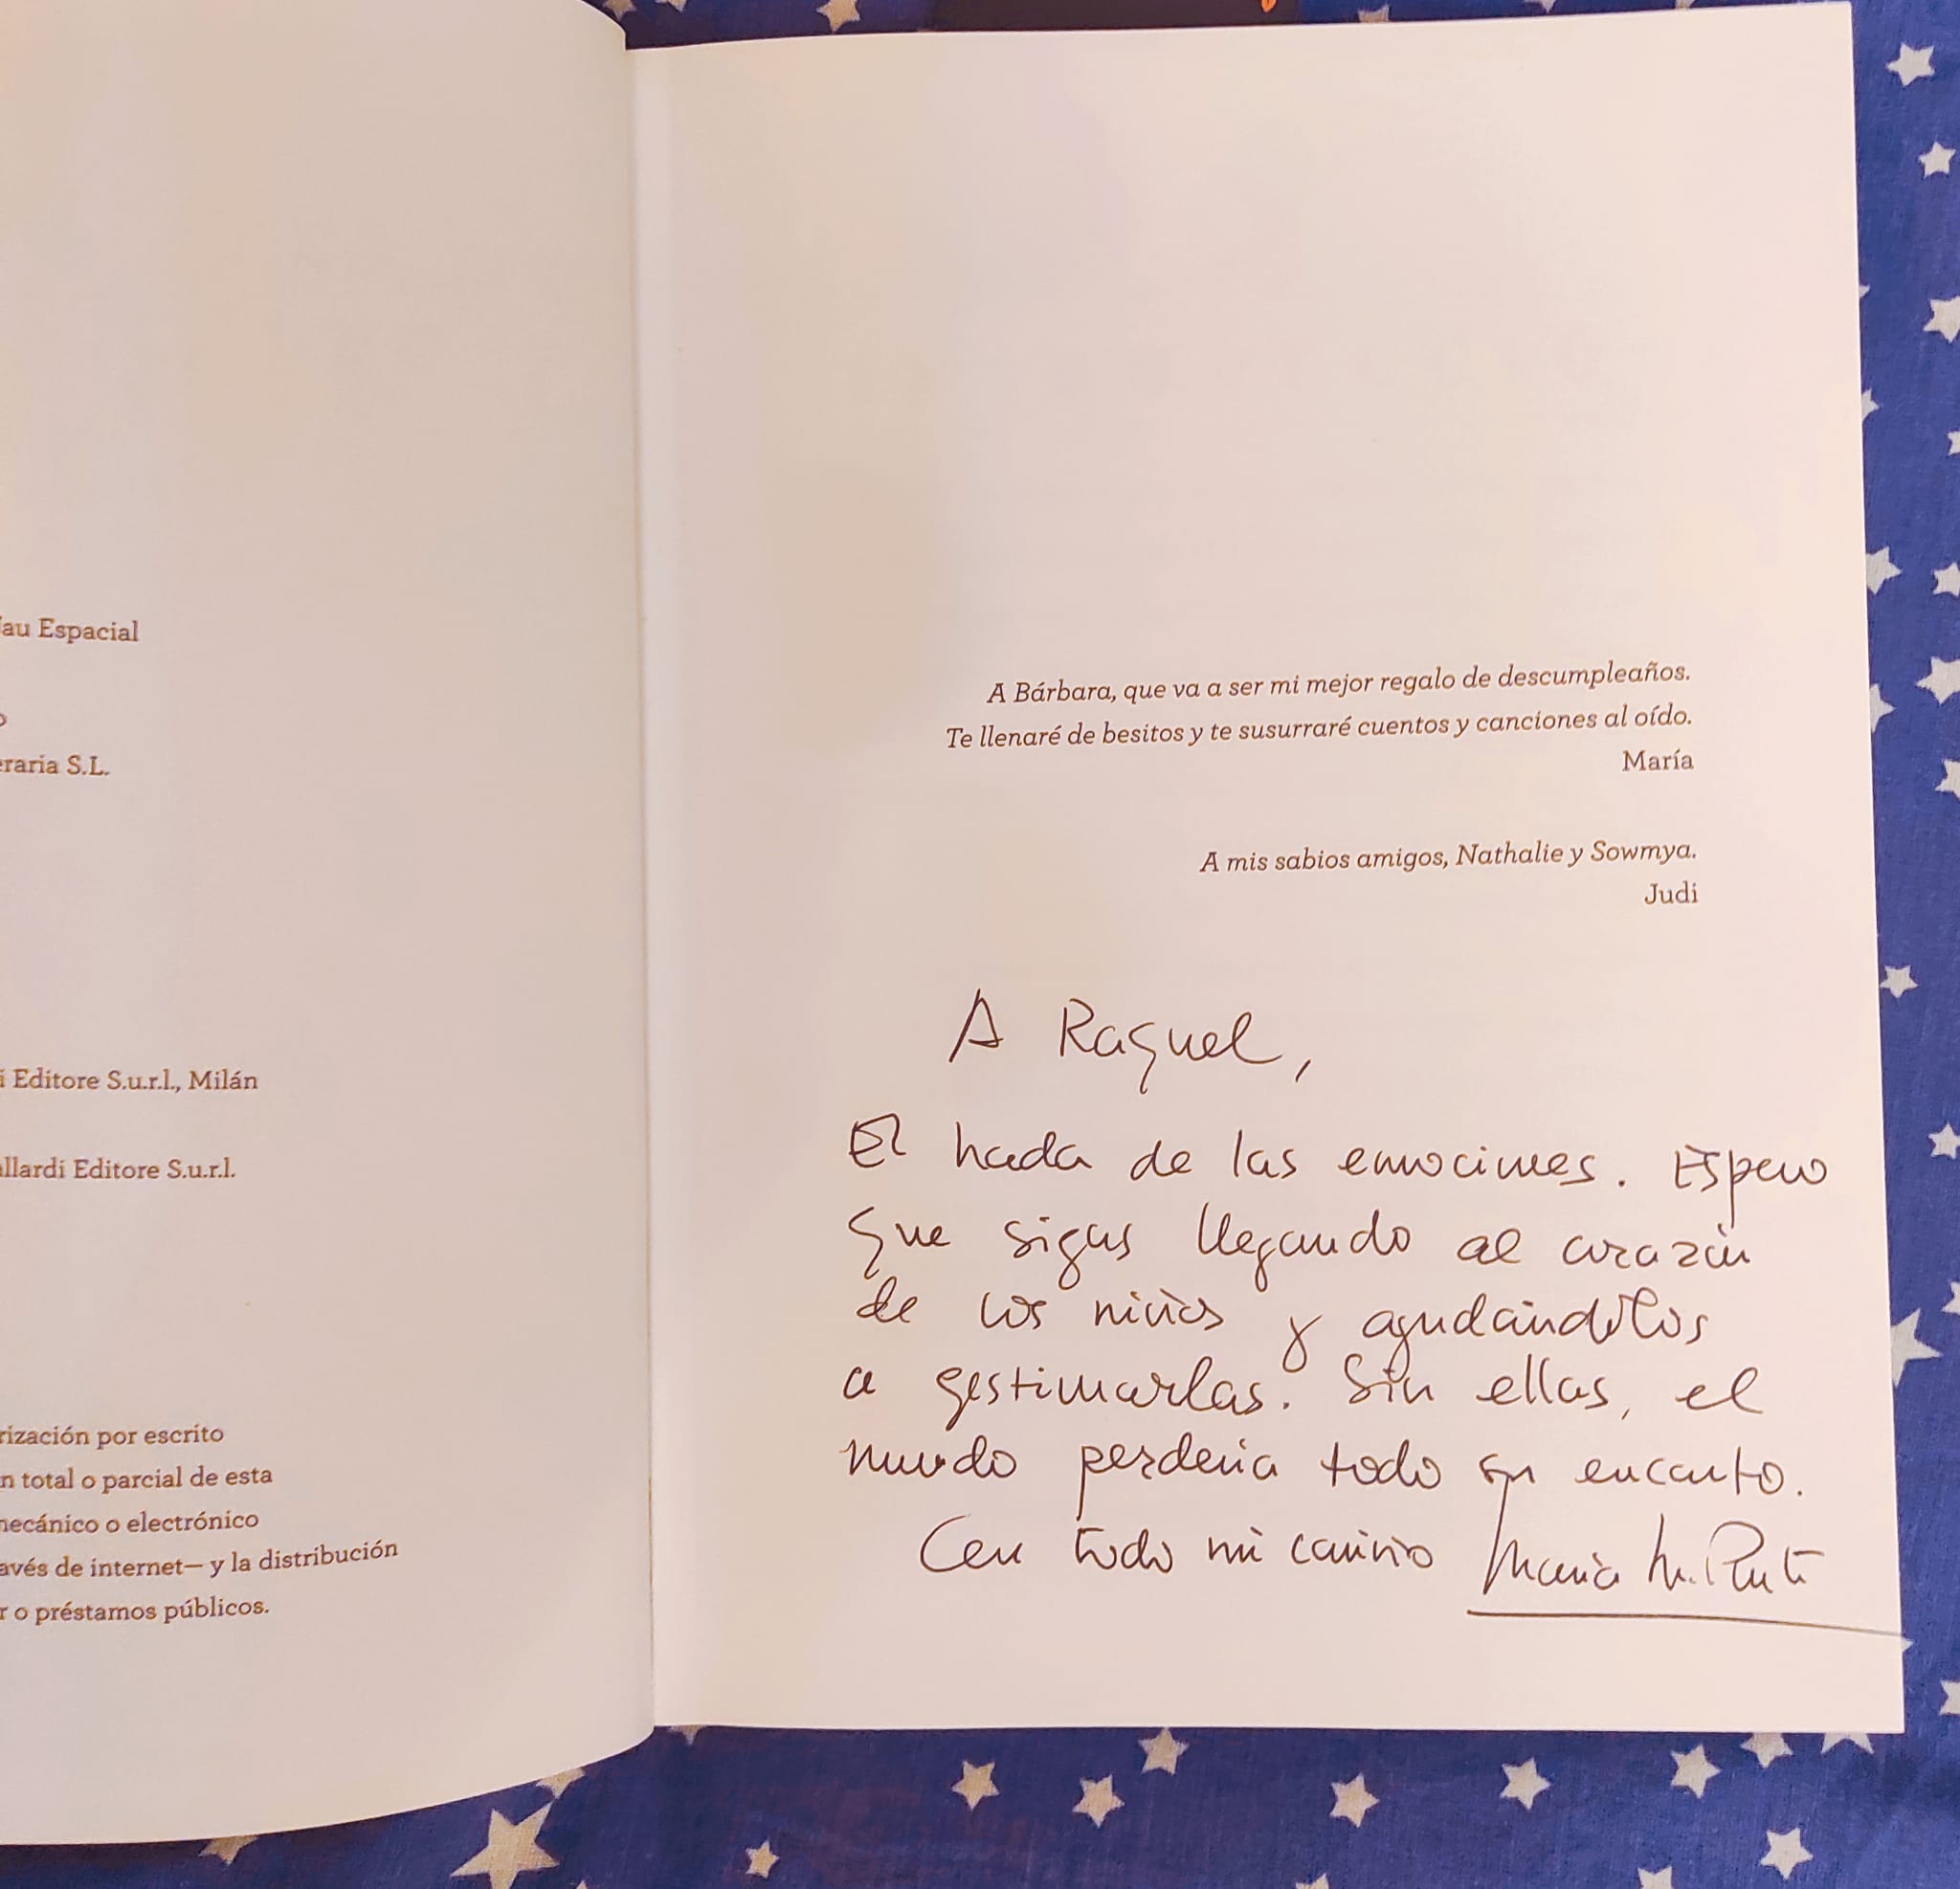 au Espacial
o
raria S.L.
i Editore S.u.r.l., Milán
llardi Editore S.u.r.l.
rización por escrito
n total o parcial de esta
mecánico o electrónico
avés de internet— y la distribución
r o préstamos públicos.
A Bárbara, que va a ser mi mejor regalo de descumpleaños.
Te llenaré de besitos y te susurraré cuentos y canciones al oído.
María
A mis sabios amigos, Nathalie y Sowmya.
Judi
A Raquel,
El hada de las emociones. Espero
que sigas llegando al corazón
de los niños y ayudándolos
a gestionarlas. Sin ellas, el
mundo perdería todo su encanto.
Con todo mi cariño María